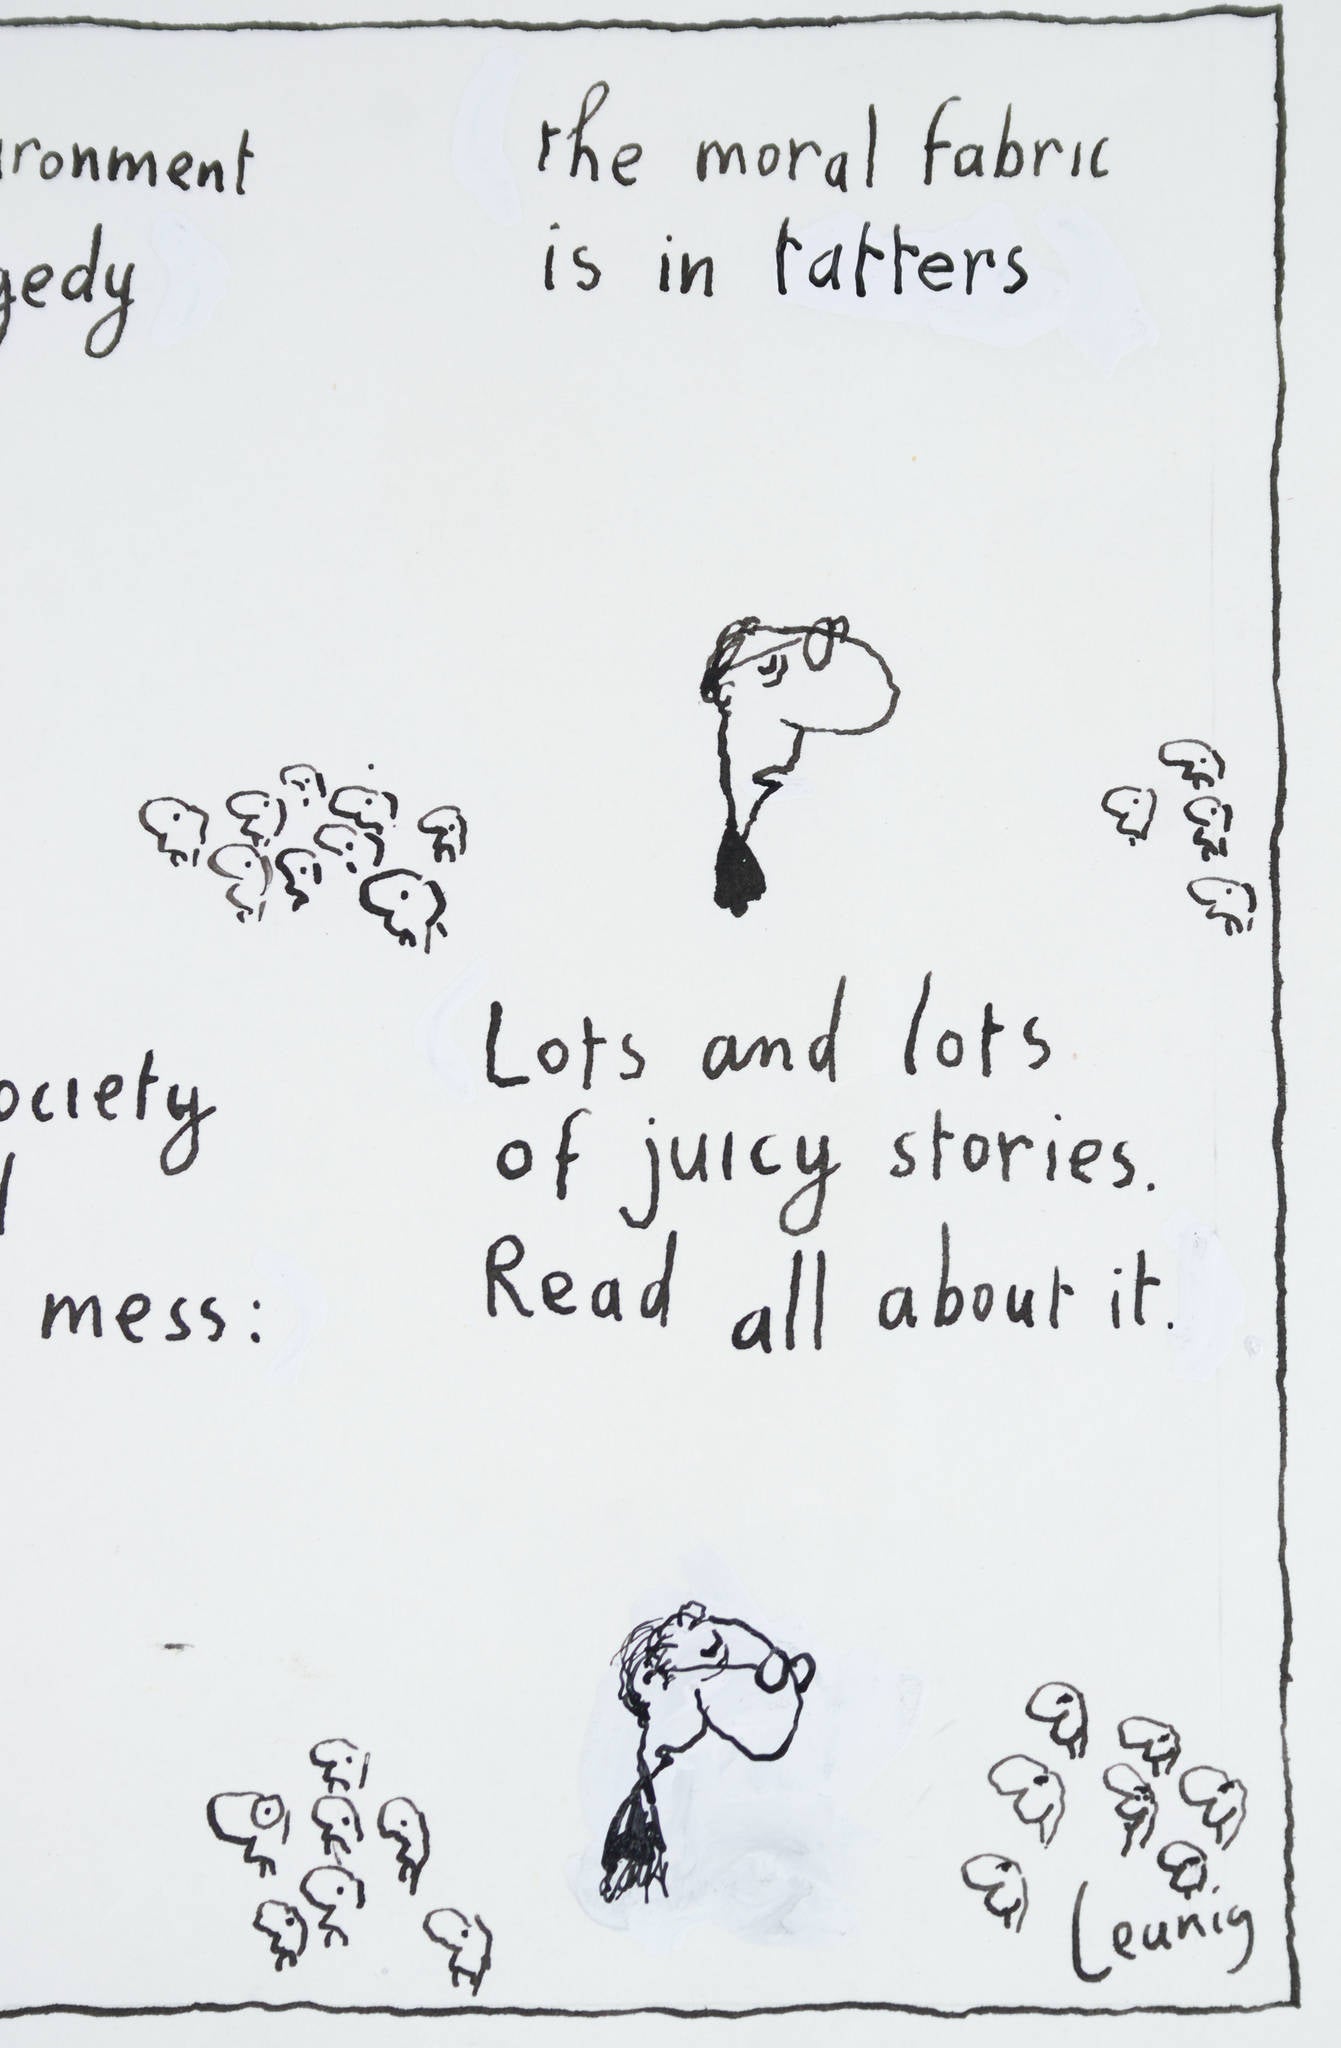 ironment
gedy
the moral fabric
is in tatters
ociety
mess:
Lots and lots
of juicy stories.
Read all about it.
Leunig